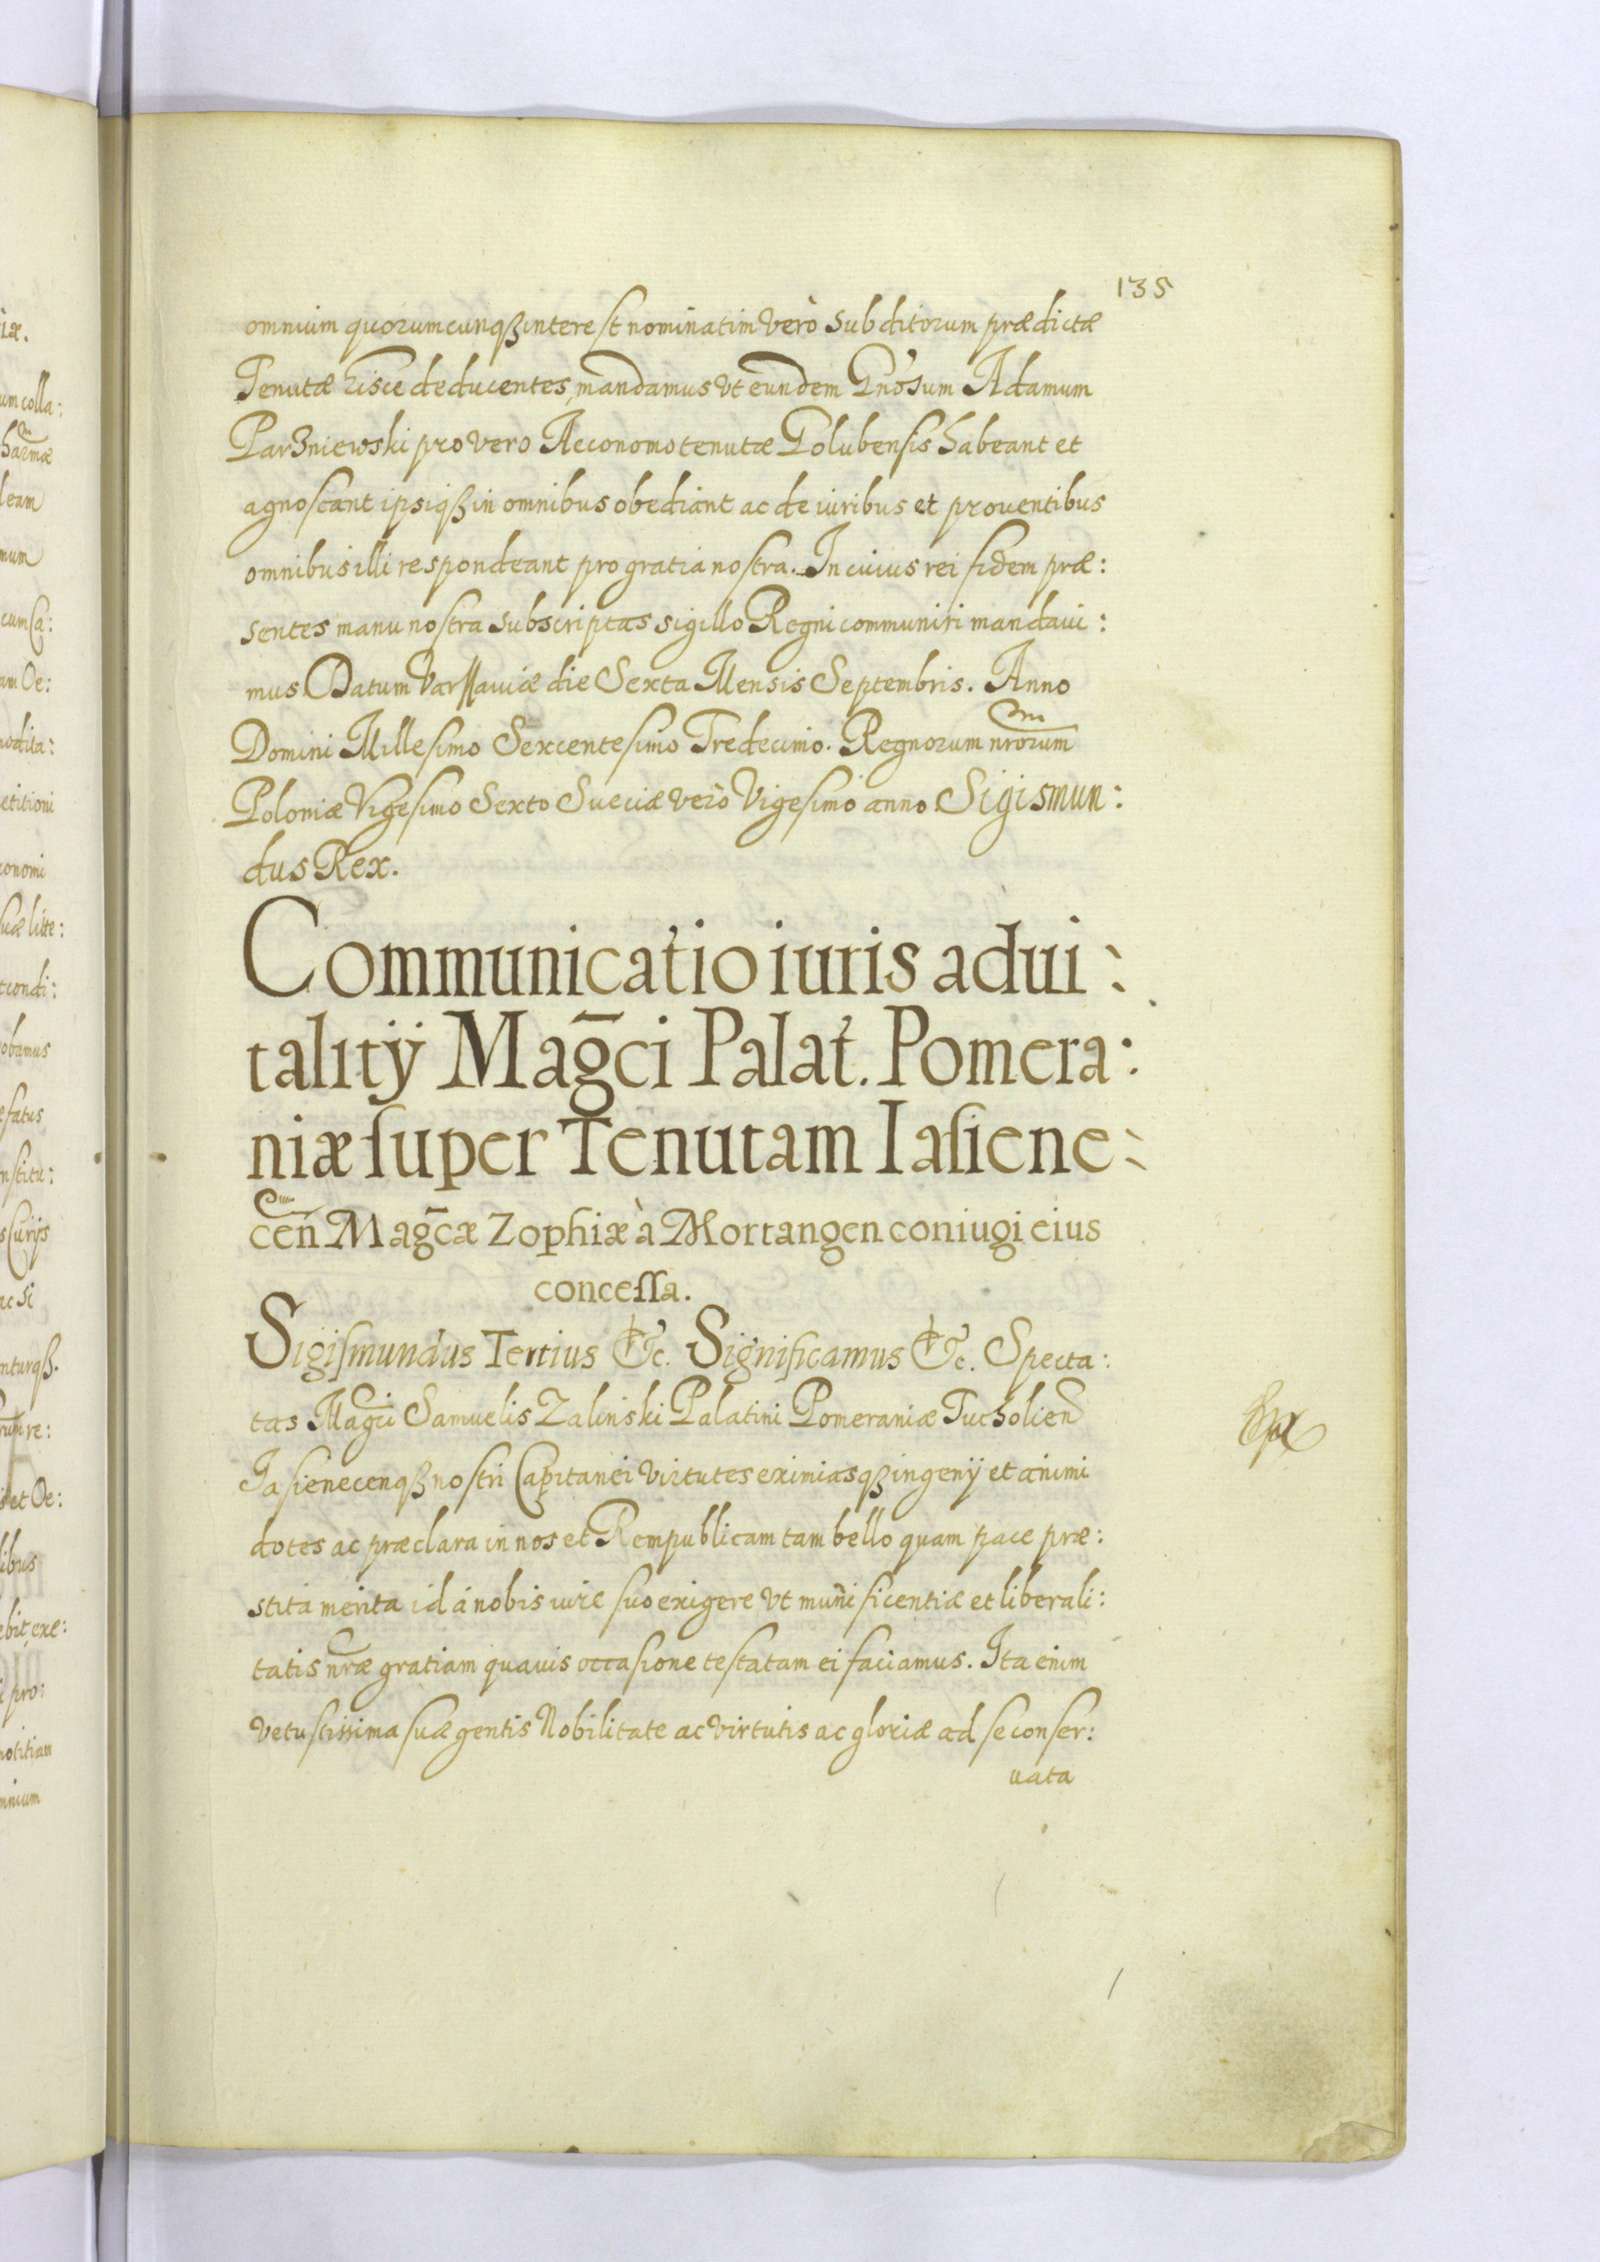 135
omnium quorumcunqꝫ interest nominatim verò subditorum prædictæ
Tenutæ hisce deducentes, mandamus vt eundem Gnosum Adamum
Parzniewski pro vero Aeconomo tenutæ Golubensis habeant et
agnoscant ipsiqꝫ in omnibus obediant ac de iuribus et prouentibus
omnibus illi respondeant pro gratia nostra. In cuius rei fidem præ:
sentes manu nostra subscriptas sigillo Regni communiri mandaui:
mus Datum Varssauiæ die Sexta Mensis Septembris. Anno
Domini Millesimo Sexcentesimo Tredecimo. Regnorum nrorum
Poloniæ Vigesimo Sexto Sueciæ verò Vigesimo anno Sigismun:
dus Rex.
Communicatio iuris adui:
talitÿ Mag̃ci Palat. Pomera:
niæ ſuper Tenutam Iaſiene:
ceñ Magc̃æ Zophiæ à Mortangen coniugi eius
conceſſa.
Sigiſmundus Tertius &c. Significamus &c. Specta:
tas Magci Samuelis Zalinski Palatini Pomeraniæ Tucholien
Jasienecenqꝫ nostri Capitanei virtutes eximiasqꝫ ingenÿ et animi
dotes ac præclara in nos et Rempublicam tam bello quam pace præ:
stita merita id à nobis iure suo exigere vt munificentiæ et liberali:
tatis nræ gratiam quauis occasione testatam ei faciamus. Ita enim
vetustissima suæ gentis Nobilitate ac virtutis ac gloriæ ad se conser:
uata